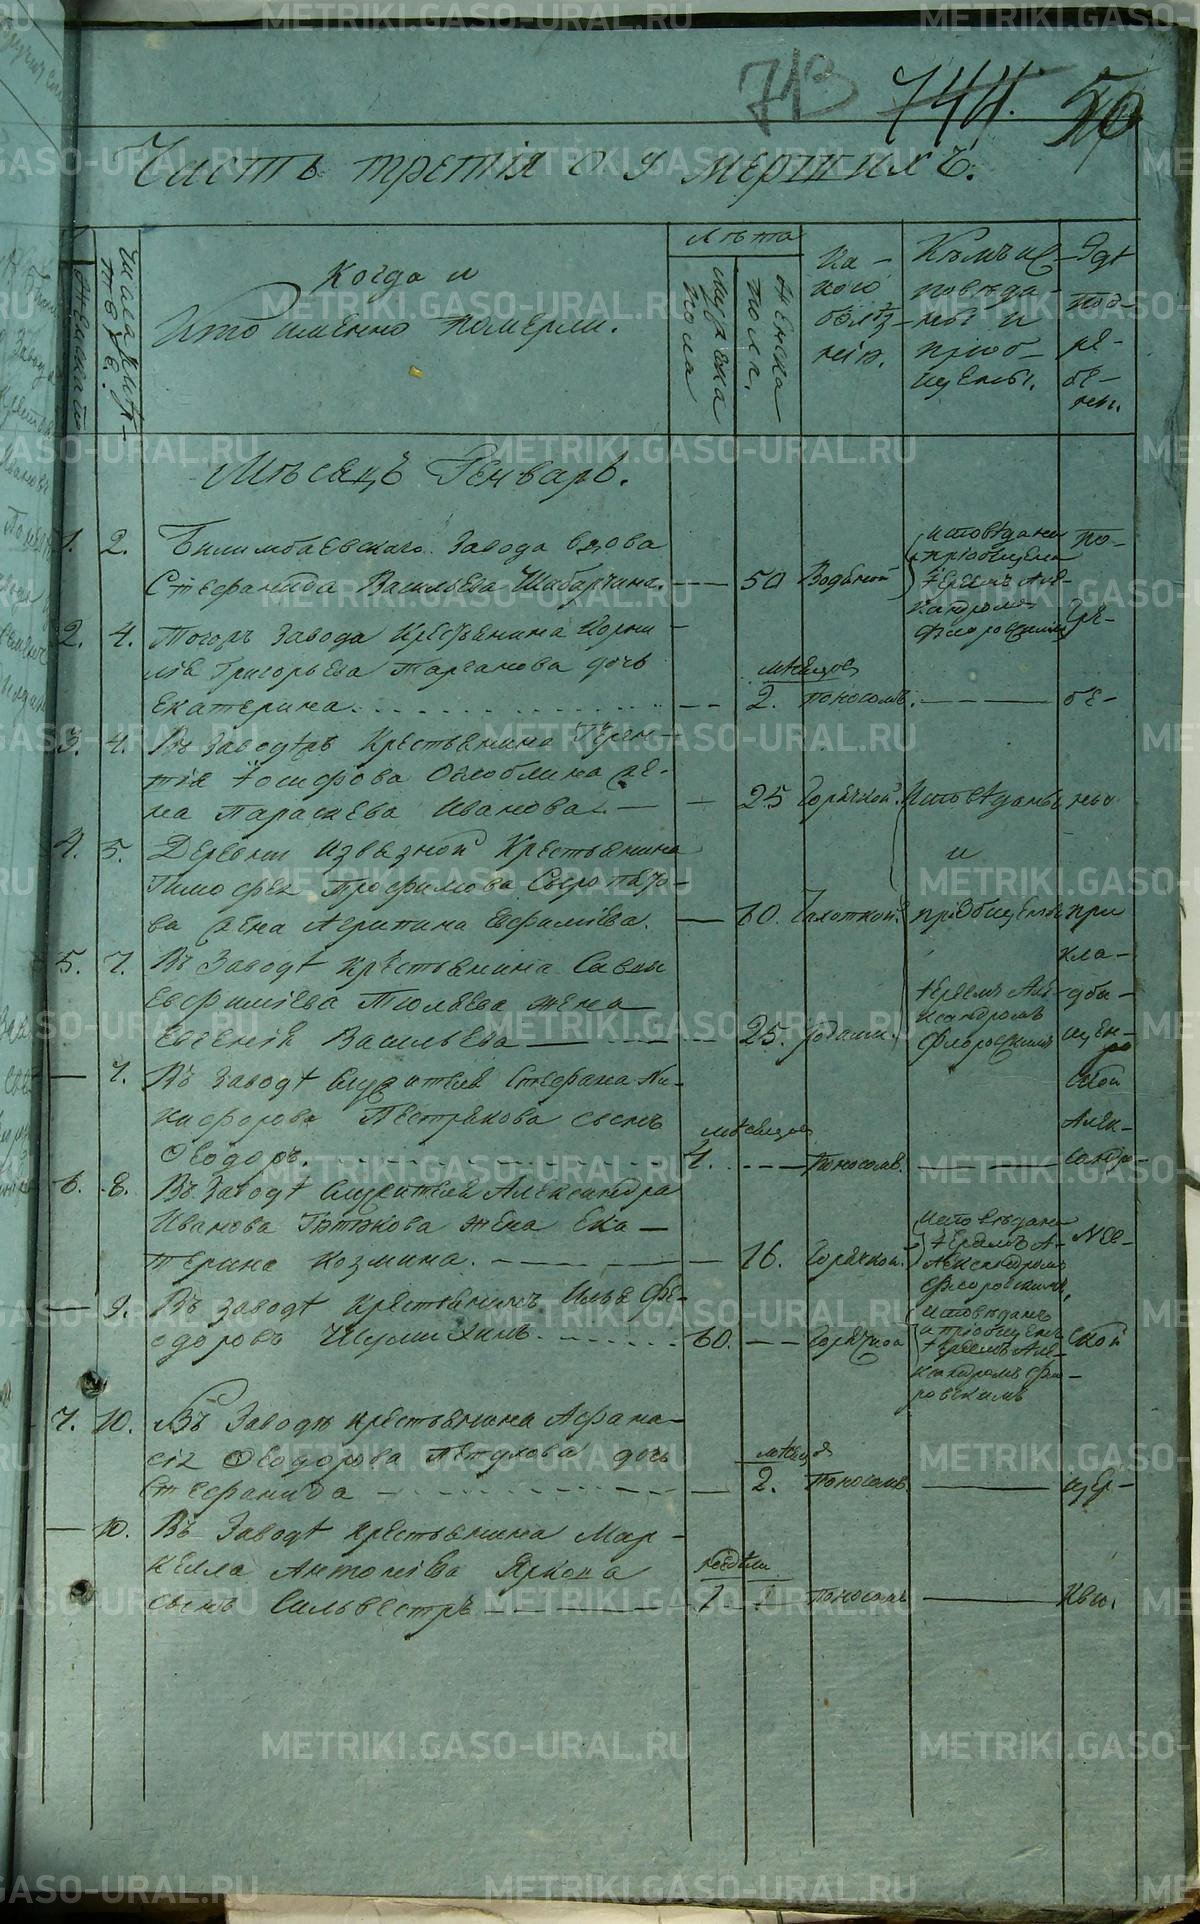 713 744. 50
Часть третія о умершихъ.
Женскаго
Числа смерте.
Когда и
Кто именно померли.
Лѣта
Мужеска пола
Женска пола.
Ка-
кого
болѣз-
ніи.
Кѣмъ ис-
повѣда-
ны и
пріоб-
щены.
Гдѣ
пог-
ре-
бе-
ны.
Мѣсяцъ Генварь.
1. 2. Билимбаевскаго Завода вдова
Стефанида Васильева Шибарчина. — — 50 Водяной
исповѣдана
пріобщена
Іереемъ Але-
ксандромъ
Флоровскимъ
по-
2. 4. Тогожъ завода Крестьянина Корни-
лія Григорьева Тарганова дочь
Екатерина. — — мѣсяцов 2. поносомъ. — — гре-
бе-
3. 4. Въ Заводѣ Крестьянина Терен-
тія Іосифова Оглоблина же-
на Параскева Иванова. — — 25 Горячкой. Исповѣданы ны
4. 5. Деревни Извѣзной Крестьянина
Тимофея Трофимова Сыропято-
ва жена Агрипина Ефимова. — 60. Чахоткой.
и
пріобщены при
5. 7. Въ Заводѣ крестьянина Саввы
Евфиміева Тюлева жена
Евгенія Васильева — — 25. родами.
Іереемъ Але-
ксандромъ
Флоровскимъ
кла-
дби-
щен-
ной
— 7. Въ заводѣ служителя Стефана Ни-
кифорова Пестрякова сынъ
Ѳеодоръ. мѣсяцов 4. — — поносомъ. — Алек-
сандро-
6. 8. Въ Заводѣ служителя Александра
Иванова жена Ека-
терина Козмина. — — 16. Горячкой.
исповѣдана
Іереемъ А-
лександромъ
Флоровскимъ,
Нев-
— 9. Въ заводѣ крестьянинъ Илья Фе-
одоровъ Шушихинъ. 60. — — Горячкою
исповѣданъ
и пріобщенъ
Іереемъ Але-
ксандромъ Фло-
ровскимъ
ской
7. 10. Въ Заводѣ крестьянина Афана-
сія Ѳеодорова Петухова дочь
Стефанида — — мѣсяца 2. поносомъ — цер-
— 10. Въ Заводѣ крестьянина Мар-
келла Антоніева Яркова
сынъ Сильвестръ — — недѣли поносомъ — кви.